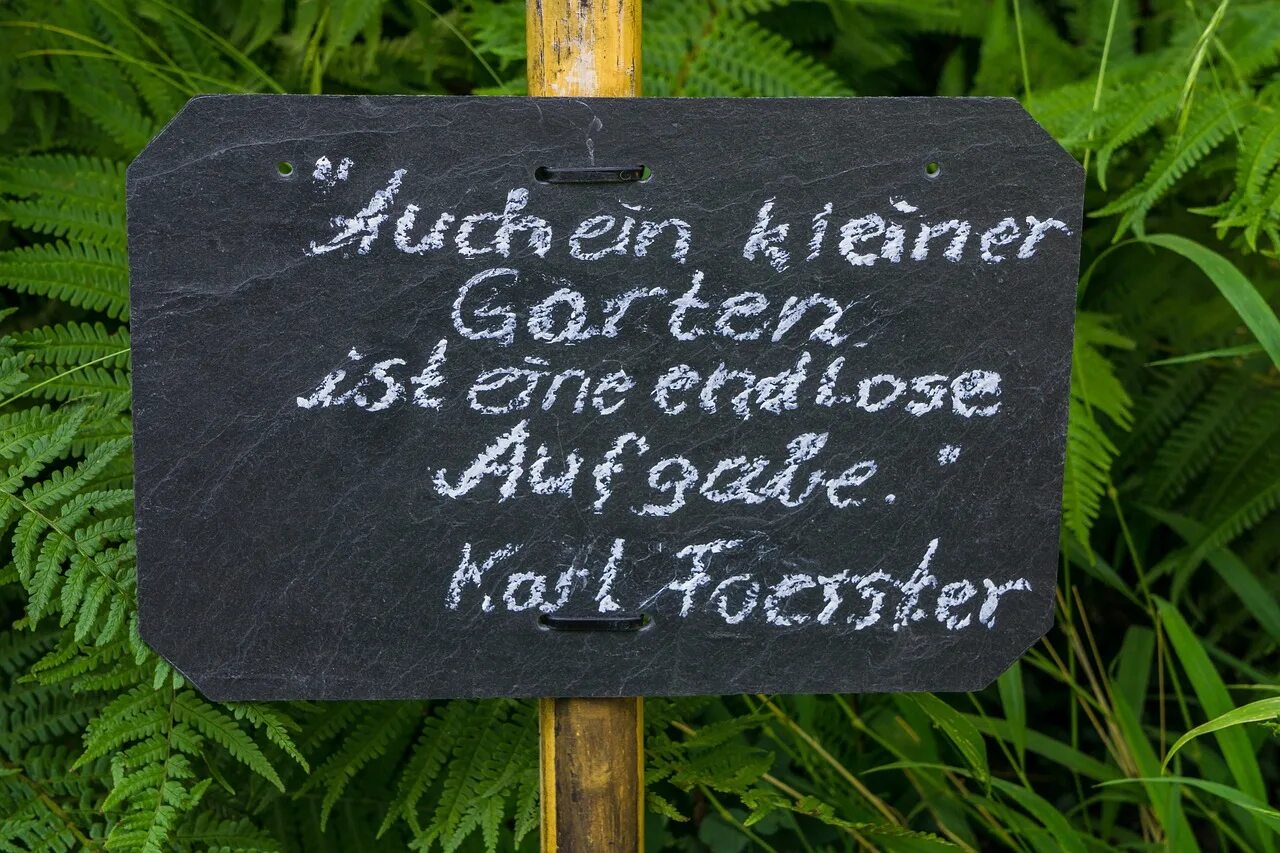 "Auch ein kleiner
Garten
ist eine endlose
Aufgabe."
Karl Foerster